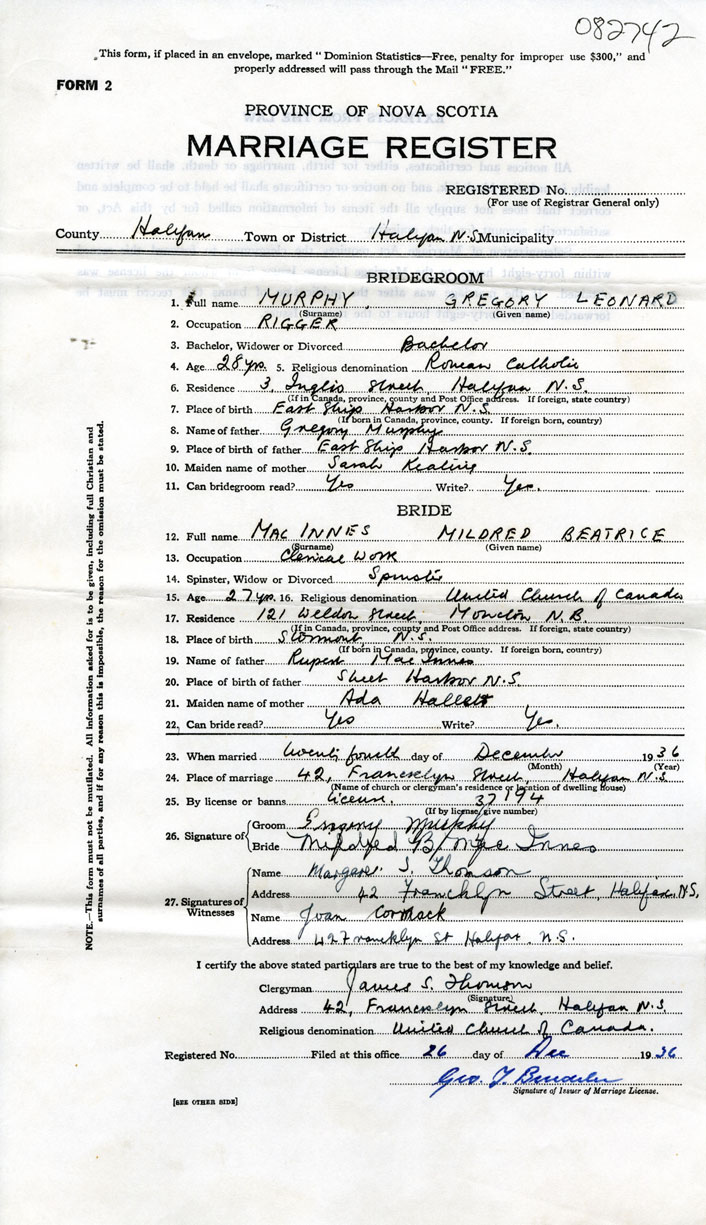 082742
„This form, if placed in an envelope, marked " Dominion Statistics—Free, penalty for improper use $300," and
properly addressed will pass through the Mail " FREE."
FORM 2
PROVINCE OF NOVA SCOTIA
MARRIAGE REGISTER
REGISTERED No.
(For use of Registrar General only)
County Halifax Town or District Halifax N.S. Municipality
BRIDEGROOM
1. Full name MURPHY, GREGORY LEONARD
(Surname) (Given name)
2. Occupation RIGGER
3. Bachelor, Widower or Divorced Bachelor
4. Age 28 yrs. 5. Religious denomination Roman Catholic
6. Residence 3, Inglis Street, Halifax N.S.
(If in Canada, province, county and Post Office address. If foreign, state country)
7. Place of birth East Ship Harbor N.S.
(If born in Canada, province, county. If foreign born, country)
8. Name of father Gregory Murphy
9. Place of birth of father East Ship Harbor N.S.
10. Maiden name of mother Sarah Keating
11. Can bridegroom read? Yes Write? Yes.
BRIDE
12. Full name MAC INNES MILDRED BEATRICE
(Surname) (Given name)
13. Occupation Clerical Work
14. Spinster, Widow or Divorced Spinster
15. Age 27 yrs. 16. Religious denomination United Church of Canada
17. Residence 121 Weldon Street, Moncton N.B.
(If in Canada, province, county and Post Office address. If foreign, state country)
18. Place of birth Stormont N.S.
(If born in Canada, province, county. If foreign born, country)
19. Name of father Rupert Mac Innes
20. Place of birth of father Sheet Harbor N.S.
21. Maiden name of mother Ada Hallett
22. Can bride read? Yes Write? Yes.
23. When married twenty fourth day of December 1936
(Month) (Year)
24. Place of marriage 42, Francklyn Street, Halifax N.S.
(Name of church or clergyman's residence or location of dwelling house)
25. By license or banns license. 37194
(If by license, give number)
26. Signature of Groom Murphy
Bride Mildred B. Mac Innes
27. Signatures of Witnesses
Name Margaret S. Thomson
Address 42 Francklyn Street, Halifax, N.S.
Name Joan Cormack
Address 42 Francklyn St Halifax, N.S.
I certify the above stated particulars are true to the best of my knowledge and belief.
Clergyman James S. Thomson
(Signature)
Address 42, Francklyn Street, Halifax N.S.
Religious denomination United Church of Canada.
Registered No. Filed at this office 26 day of Dec 1936
Geo. J.
Signature of Issuer of Marriage License.
[SEE OTHER SIDE]
NOTE.—This form must not be mutilated. All information asked for is to be given, including full Christian and
surnames of all parties, and if for any reason this is impossible, the reason for the omission must be stated.